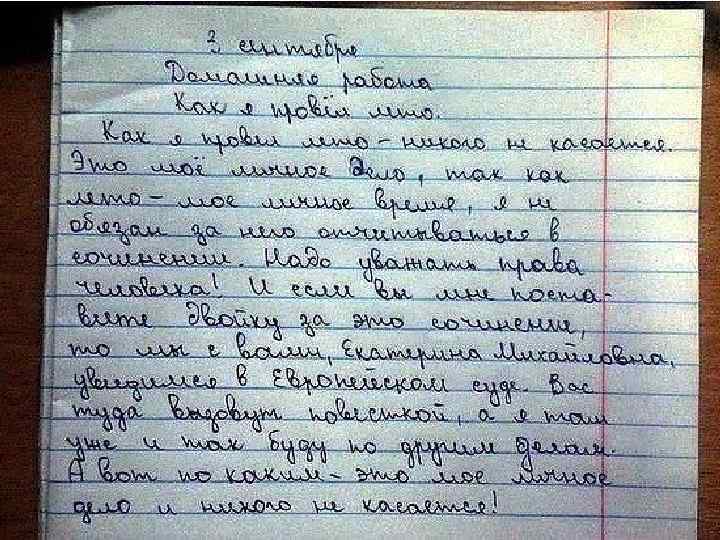 3 сентября
Домашняя работа
Как я провёл лето.
Как я провёл лето – никого не касается.
Это моё личное дело, так как
лето – мое личное время, я не
обязан за него отчитываться в
сочинении. Надо уважать права
человека! И если вы мне поста-
вите двойку за это сочинение,
то мы с вами, Екатерина Михайловна,
увидимся в Европейском суде. Вас
туда вызовут повесткой, а я там
уже и так буду по другим делам.
А вот по каким – это мое личное
дело и никого не касается!